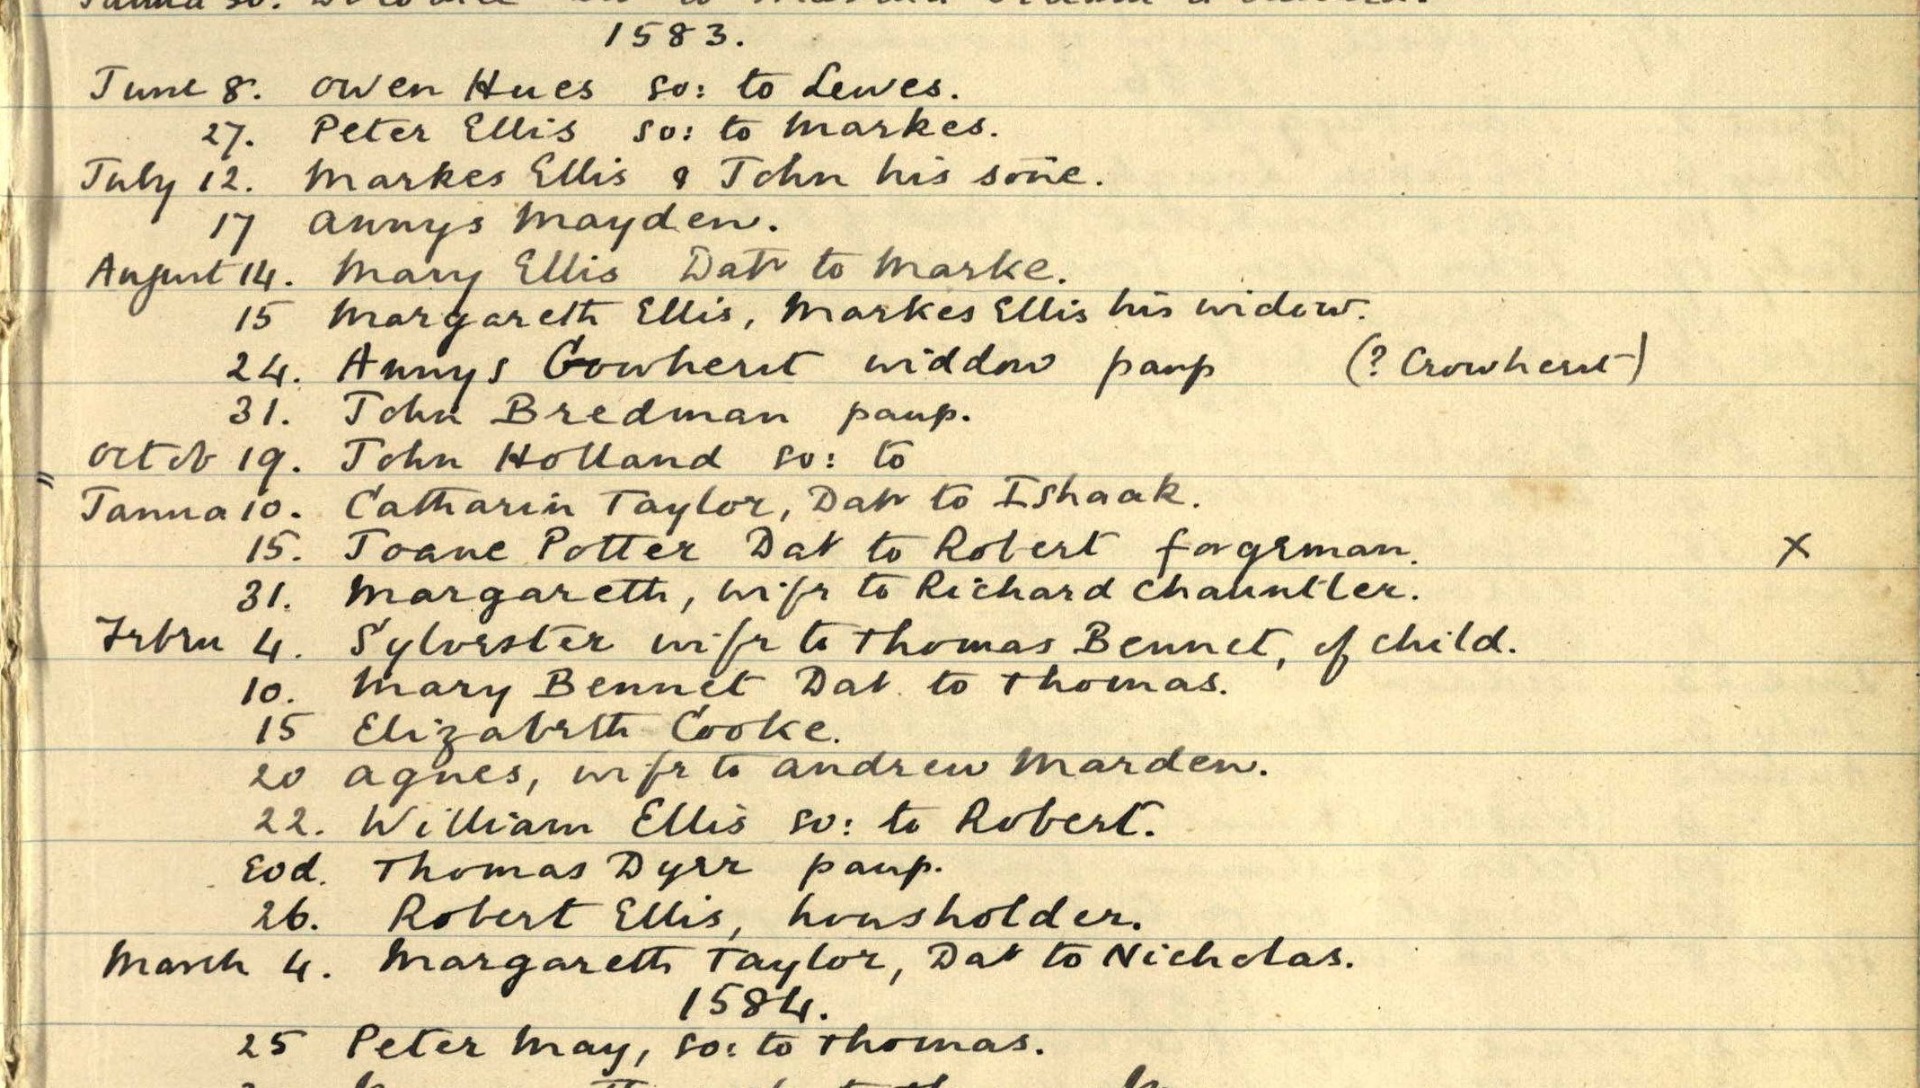 1583.
June 8. Owen Hues so: to Lewes.
27. Peter Ellis so: to Markes.
July 12. Markes Ellis & John his sōne.
17 Annys Mayden.
August 14. Mary Ellis Datr to Marke.
15 Margareth Ellis, Markes Ellis his widow.
24. Annys Gowherst widdow paup (? Crowherst)
31. John Bredman paup.
Octob 19. John Holland so: to
Janua 10. Catharin Taylor, Datr to Ishaak.
15. Joane Potter Dat to Robert forgeman. X
31. Margareth, wife to Richard Chauntler.
Febru 4. Sylvester wife to Thomas Bennet, of child.
10. Mary Bennet Dat. to Thomas.
15 Elizabeth Cooke.
20 Agnes, wife to Andrew Marden.
22. William Ellis so: to Robert.
Eod. Thomas Dyer paup.
26. Robert Ellis, housholder.
March 4. Margareth Taylor, Dat to Nicholas.
1584.
25 Peter May, so: to Thomas.